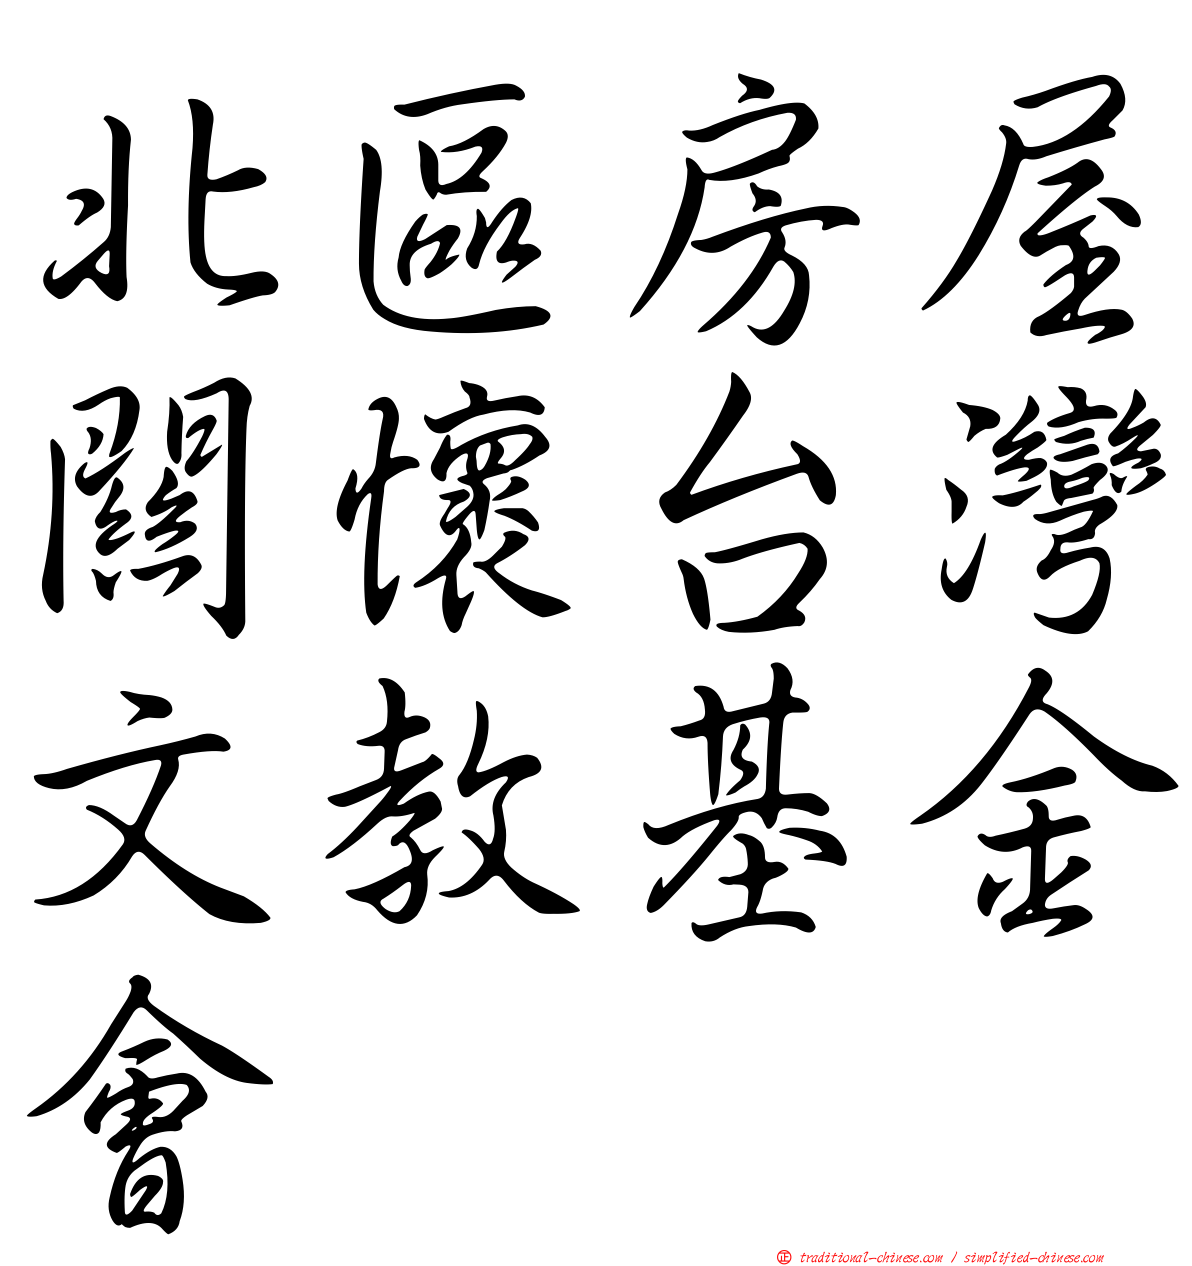 北區房屋
關懷台灣
文教基金
會
㊣ traditional-chinese.com / simplified-chinese.com